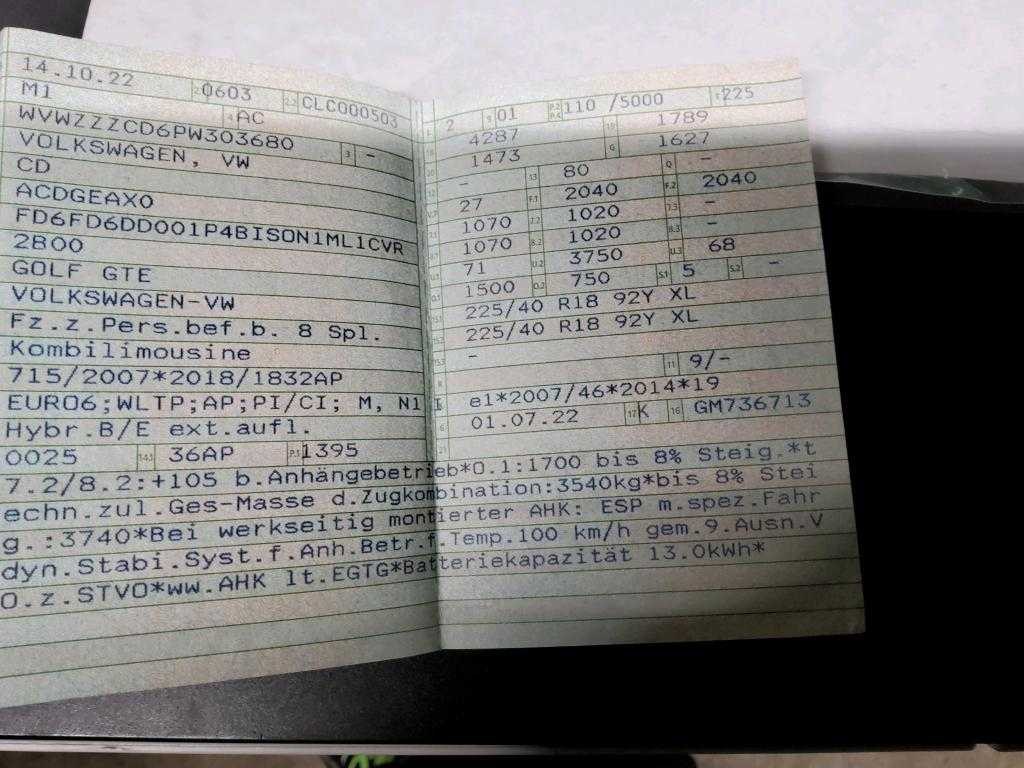 14.10.22 0603 CLC000503
M1 AC
WVWZZZCD6PW303680 3 -
VOLKSWAGEN, VW
CD
ACDGEAX0
FD6FD6DD001P4BISON1ML1CVR
2800
GOLF GTE
VOLKSWAGEN-VW
Fz.z.Pers.bef.b. 8 Spl.
Kombilimousine
715/2007*2018/1832AP
EURO6;WLTP;AP;PI/CI; M, N1 I
Hybr.B/E ext.aufl.
0025 14.1 36AP P.3 1395
2 9 01 P.2 P.4 110 /5000 T 225
4287 19 1789
1473 G 1627
- 13 80 Q -
27 F.1 2040 F.2 2040
1070 7.2 1020 7.3 -
1070 8.2 1020 8.3 -
71 U.2 3750 U.3 68
1500 O.2 750 S.1 5 S.2 -
225/40 R18 92Y XL
225/40 R18 92Y XL
-
11 9/-
e1*2007/46*2014*19
01.07.22 17 K 16 GM736713
7.2/8.2:+105 b.Anhängebetrieb*O.1:1700 bis 8% Steig.*t
echn.zul.Ges-Masse d.Zugkombination:3540kg*bis 8% Stei
g.:3740*Bei werkseitig montierter AHK: ESP m.spez.Fahr
dyn.Stabi.Syst.f.Anh.Betr.f.Temp.100 km/h gem.9.Ausn.V
O.z.STVO*ww.AHK lt.EGTG*Batteriekapazität 13.0kWh*